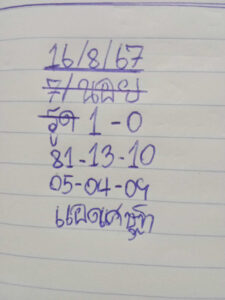 16/8/67
7/นอย
รูด 1-0
81-13-10
05-04-09
แอดเศรษฐา